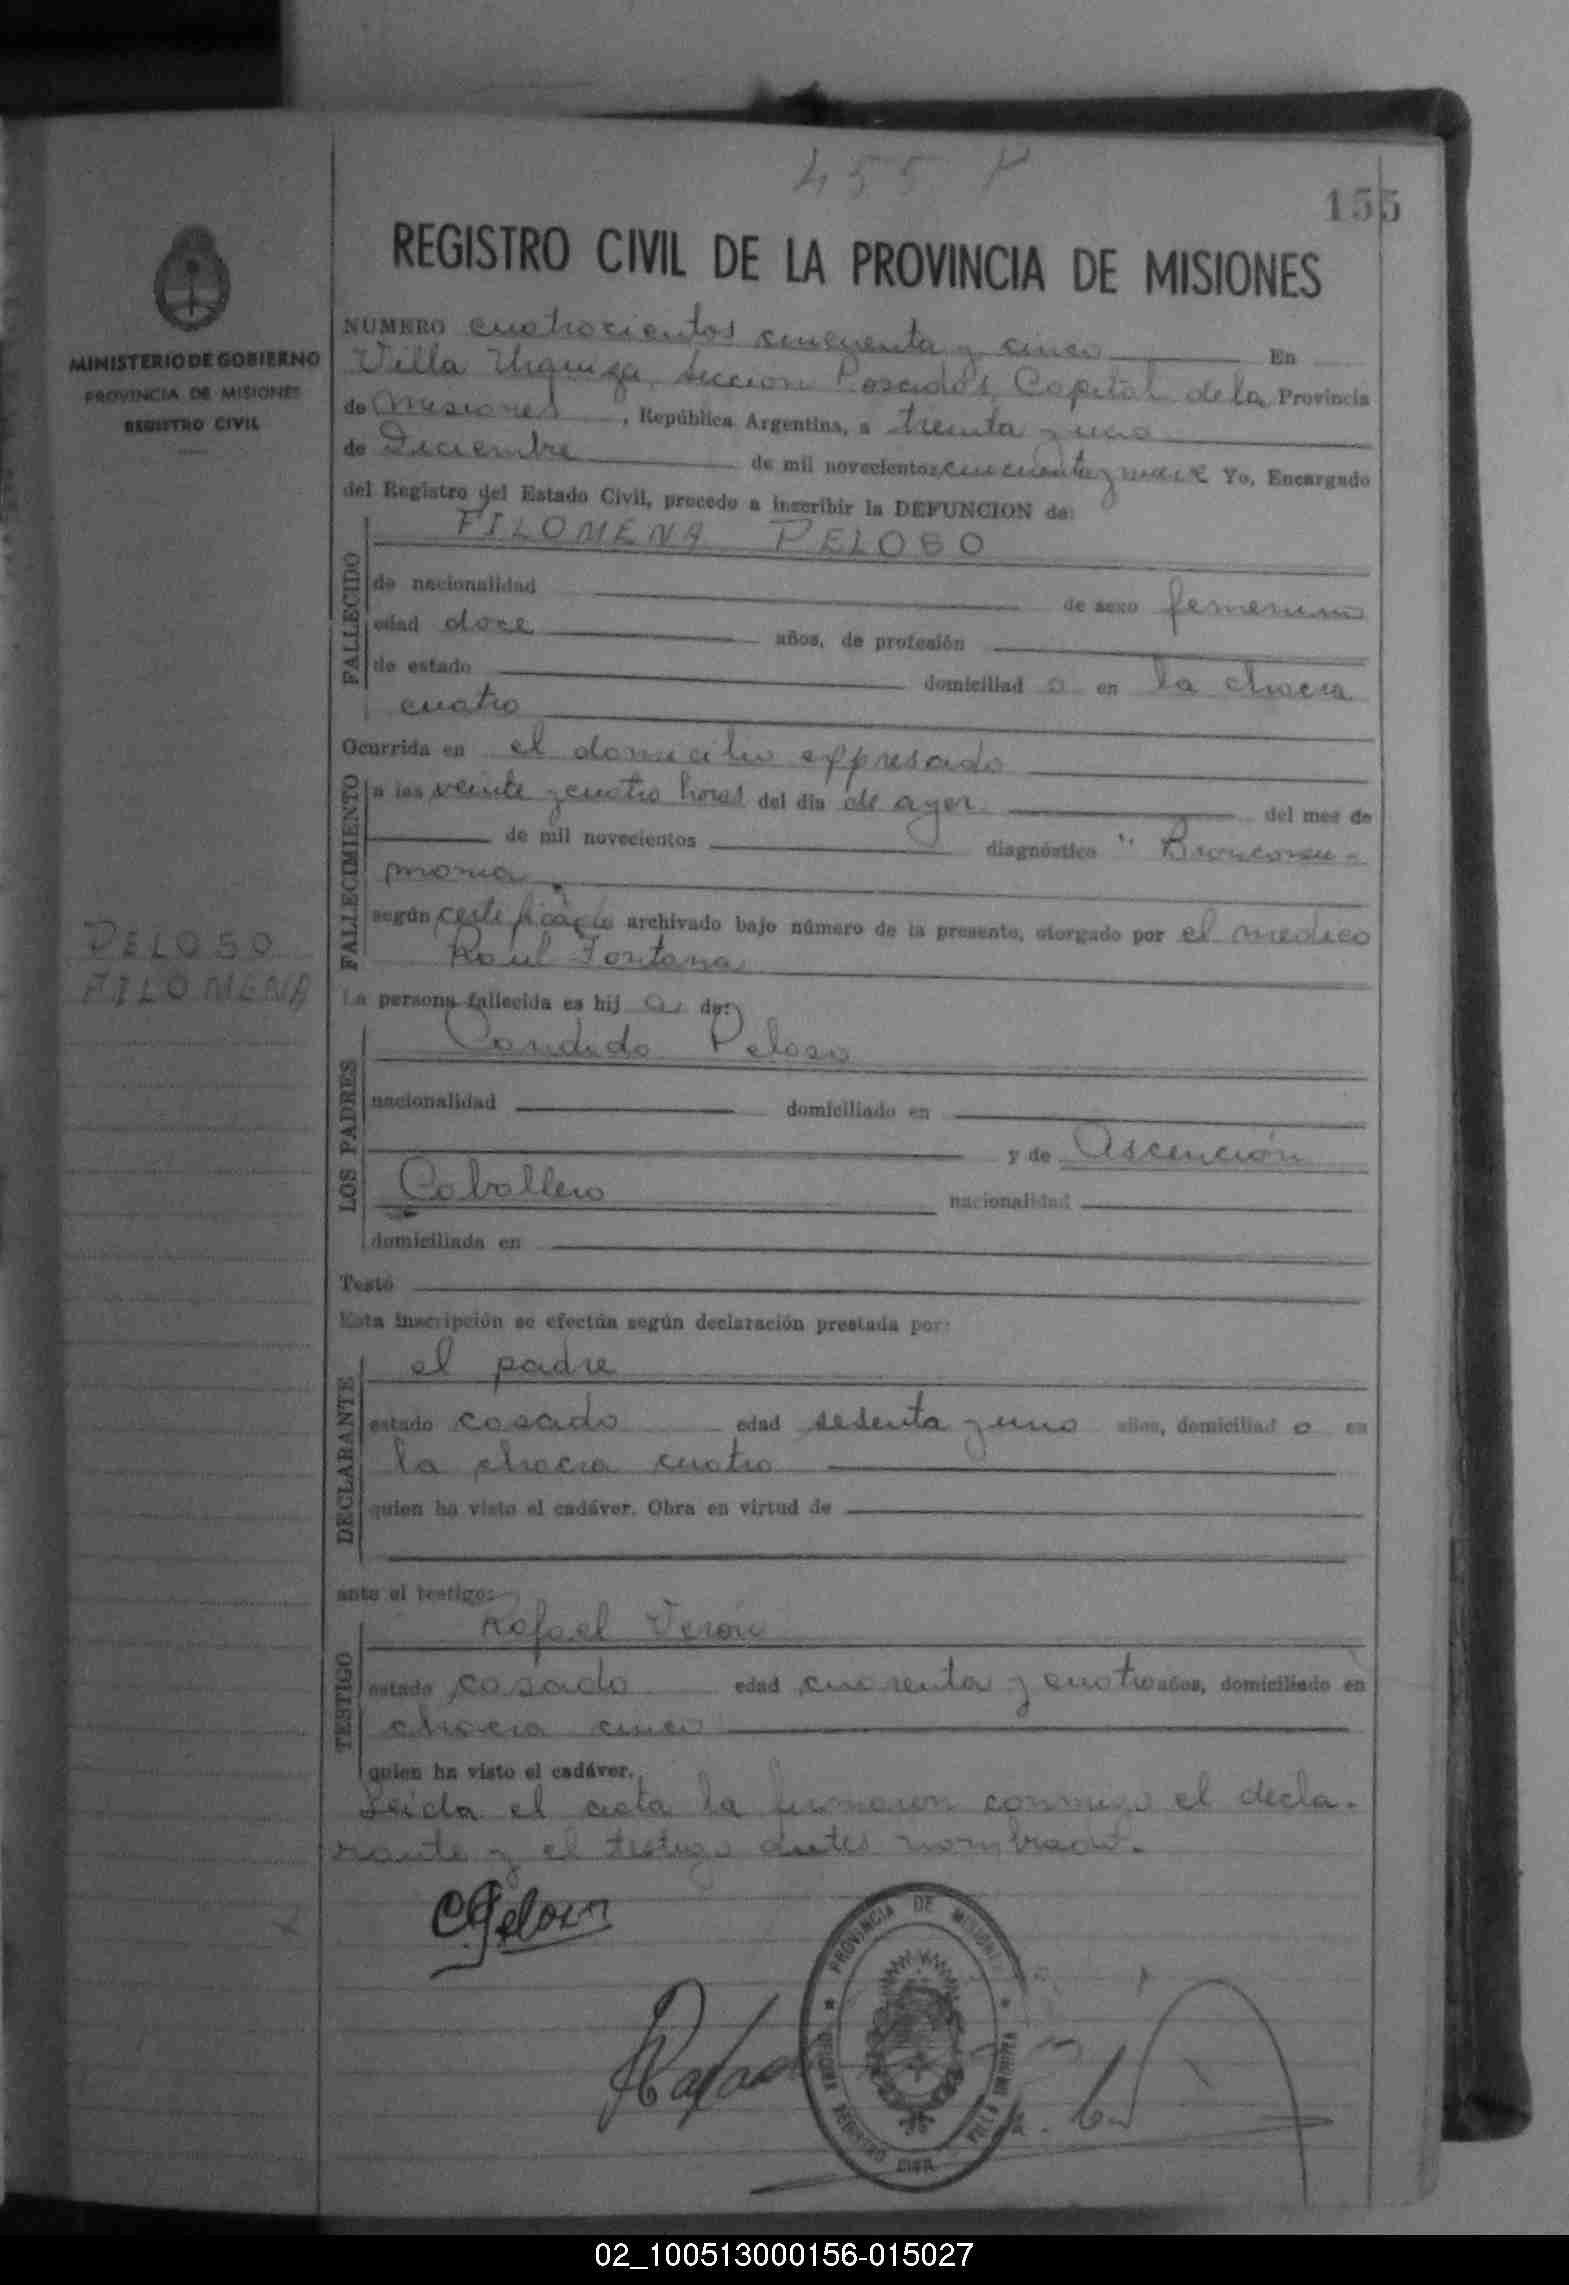 455
155
REGISTRO CIVIL DE LA PROVINCIA DE MISIONES
MINISTERIO DE GOBIERNO
PROVINCIA DE MISIONES
REGISTRO CIVIL
NUMERO cuatrocientos cincuenta y cinco En
Villa Urquiza, Sección Posadas, Capital de la Provincia
de Misiones, República Argentina, a treinta y uno
de Diciembre de mil novecientos cincuenta y nueve Yo, Encargado
del Registro del Estado Civil, procedo a inscribir la DEFUNCION de:
FALLECIDO
FILOMENA PELOSO
de nacionalidad de sexo femenino
edad doce años, de profesión
de estado domiciliad a en la chacra
cuatro
Ocurrida en el domicilio expresado
FALLECIMIENTO
a las veinte y cuatro horas del día de ayer del mes de
de mil novecientos diagnóstico " Bronconeu-
monia
según certificado archivado bajo número de la presente, otorgado por el medico
Raul Fontana
PELOSO
FILOMENA
La persona fallecida es hij a de:
LOS PADRES
Candido Peloso
nacionalidad domiciliado en
y de Ascención
Caballero nacionalidad
domiciliada en
Testó
Esta inscripción se efectúa según declaración prestada por:
DECLARANTE
el padre
estado casado edad sesenta y uno años, domiciliad o en
la chacra cuatro
quien ha visto el cadáver. Obra en virtud de
ante el testigo:
TESTIGO
Rafael Verón
estado casado edad cuarenta y cuatro años, domiciliado en
chacra cinco
quien ha visto el cadáver.
Leida el acta la firmaron conmigo el decla-
rante y el testigo antes nombrado.-
C Peloso
Rafael
PROVINCIA DE MISIONES
OFICINA REGISTRO CIVIL VILLA URQUIZA
02_100513000156-015027